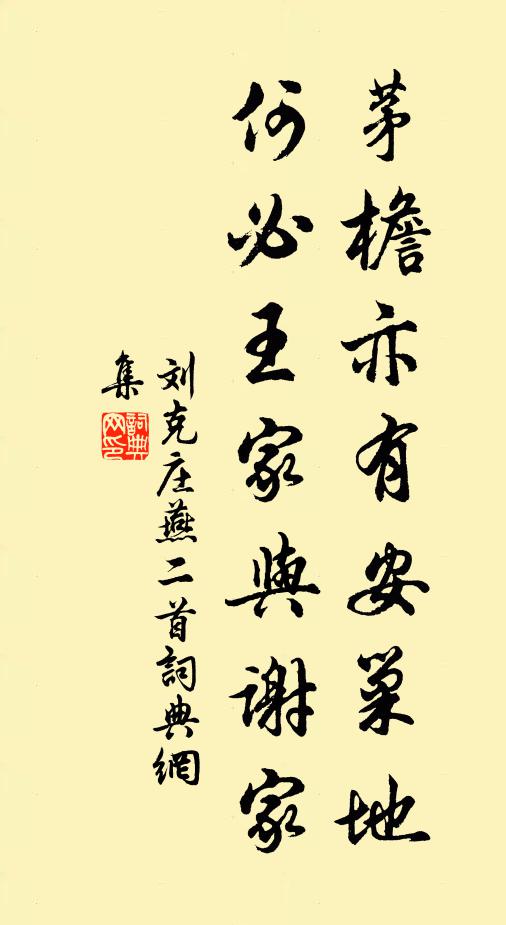 茅檐亦有安巢地
何必王家與谢家
刘克庄燕二首詞典網
集
詞典网印